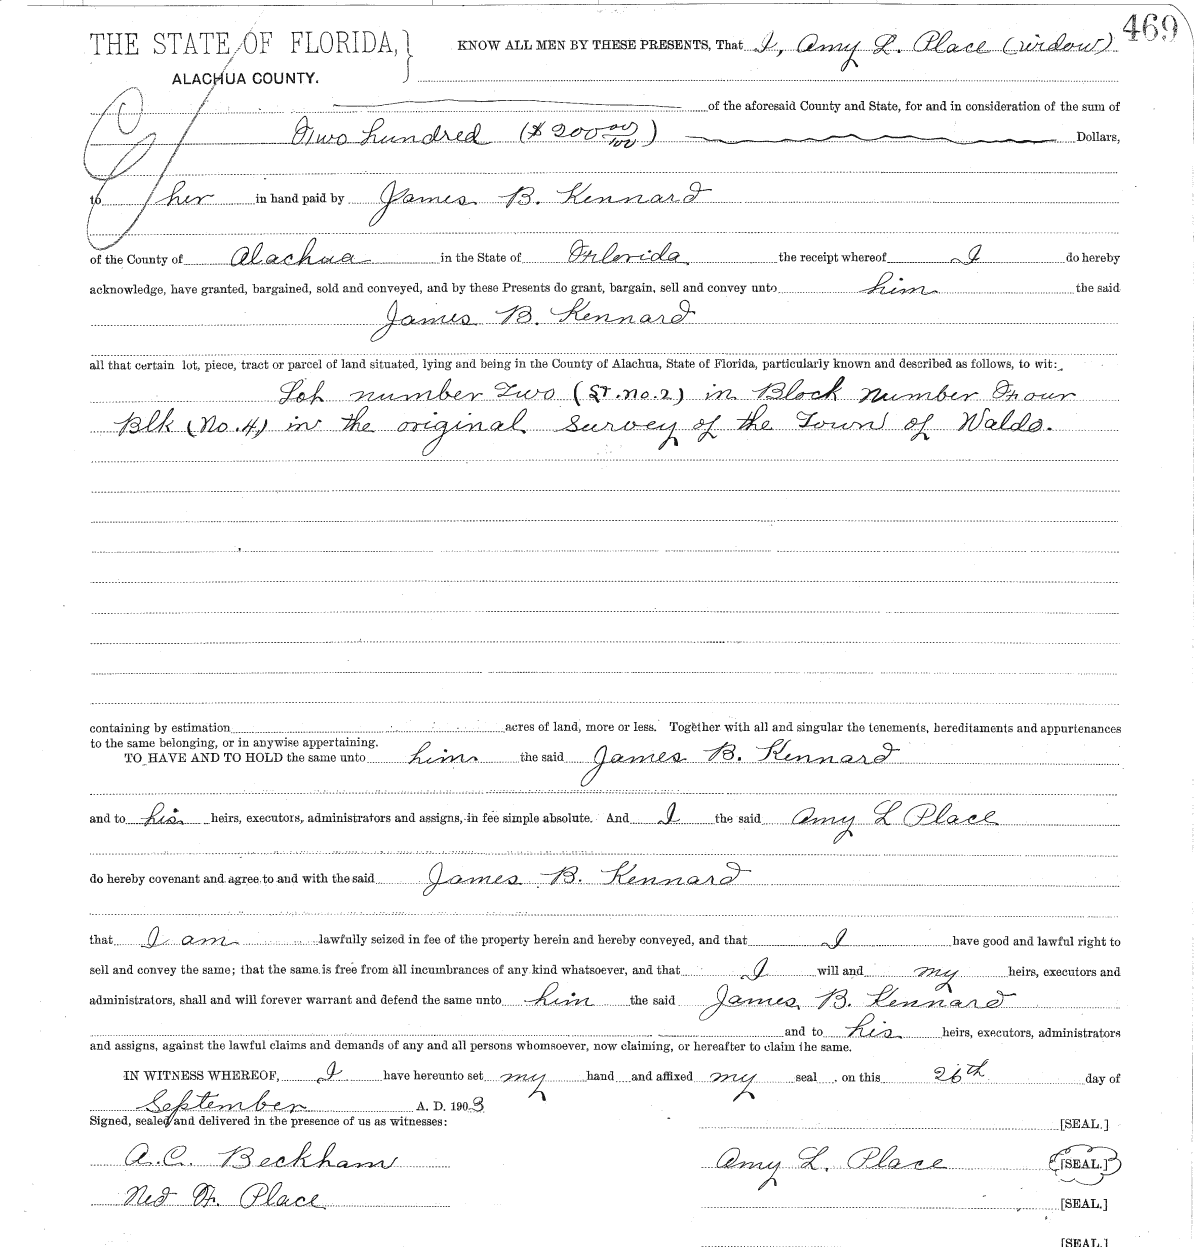 469
THE STATE OF FLORIDA, } KNOW ALL MEN BY THESE PRESENTS, That I, Amy L. Place (widow)
ALACHUA COUNTY.
of the aforesaid County and State, for and in consideration of the sum of
Two hundred ($200 00/100) Dollars,
to her in hand paid by James B. Kennard
of the County of Alachua in the State of Florida the receipt whereof I do hereby
acknowledge, have granted, bargained, sold and conveyed, and by these Presents do grant, bargain, sell and convey unto him the said
James B. Kennard
all that certain lot, piece, tract or parcel of land situated, lying and being in the County of Alachua, State of Florida, particularly known and described as follows, to wit:
Lot number Two (Lt. no. 2) in Block number Four
Blk (No. 4) in the original Survey of the Town of Waldo.
containing by estimation acres of land, more or less. Together with all and singular the tenements, hereditaments and appurtenances
to the same belonging, or in anywise appertaining.
TO HAVE AND TO HOLD the same unto him the said James B. Kennard
and to his heirs, executors, administrators and assigns, in fee simple absolute. And I the said Amy L Place
do hereby covenant and agree to and with the said James B. Kennard
that I am lawfully seized in fee of the property herein and hereby conveyed, and that I have good and lawful right to
sell and convey the same; that the same is free from all incumbrances of any kind whatsoever, and that I will and my heirs, executors and
administrators, shall and will forever warrant and defend the same unto him the said James B. Kennard
and to his heirs, executors, administrators
and assigns, against the lawful claims and demands of any and all persons whomsoever, now claiming, or hereafter to claim the same.
IN WITNESS WHEREOF, I have hereunto set my hand and affixed my seal on this 26th day of
September A. D. 1903
Signed, sealed and delivered in the presence of us as witnesses: [SEAL.]
A. C. Beckham Amy L. Place [SEAL.]
Ned F. Place [SEAL.]
[SEAL.]